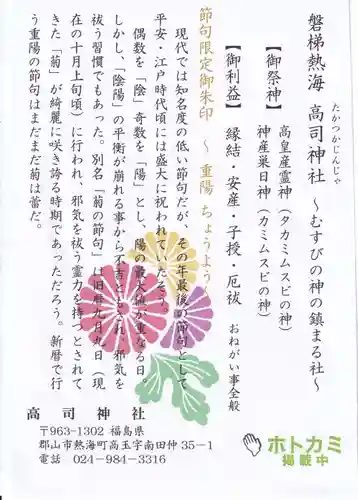 磐梯熱海 高司神社 ～むすびの神の鎮まる社～
たかつかじんじゃ
【御祭神】
高皇産霊神（タカミムスビの神）
神産巣日神（カミムスビの神）
【御利益】 縁結・安産・子授・厄祓 おねがい事全般
節句限定御朱印 ～重陽 ちょうよう
現代では知名度の低い節句だが、その年最後の節句として
平安・江戸時代頃には盛大に祝われていたそう。
偶数を「陰」奇数を「陽」とし、陽の最大値が重なる日。
しかし、「陰陽」の平衡が崩れる事から不吉とされ、邪気を
祓う習慣でもあった。別名「菊の節句」は旧暦九月九日（現
在の十月上旬頃）に行われ、邪気を祓う霊力を持つとされて
きた「菊」が綺麗に咲き誇る時期であっただろう。新暦で行
う重陽の節句はまだまだ菊は蕾だ。
高司神社
〒963-1302 福島県
郡山市熱海町高玉字南田仲35－1
電話 024-984-3316
ホトカミ
掲載中